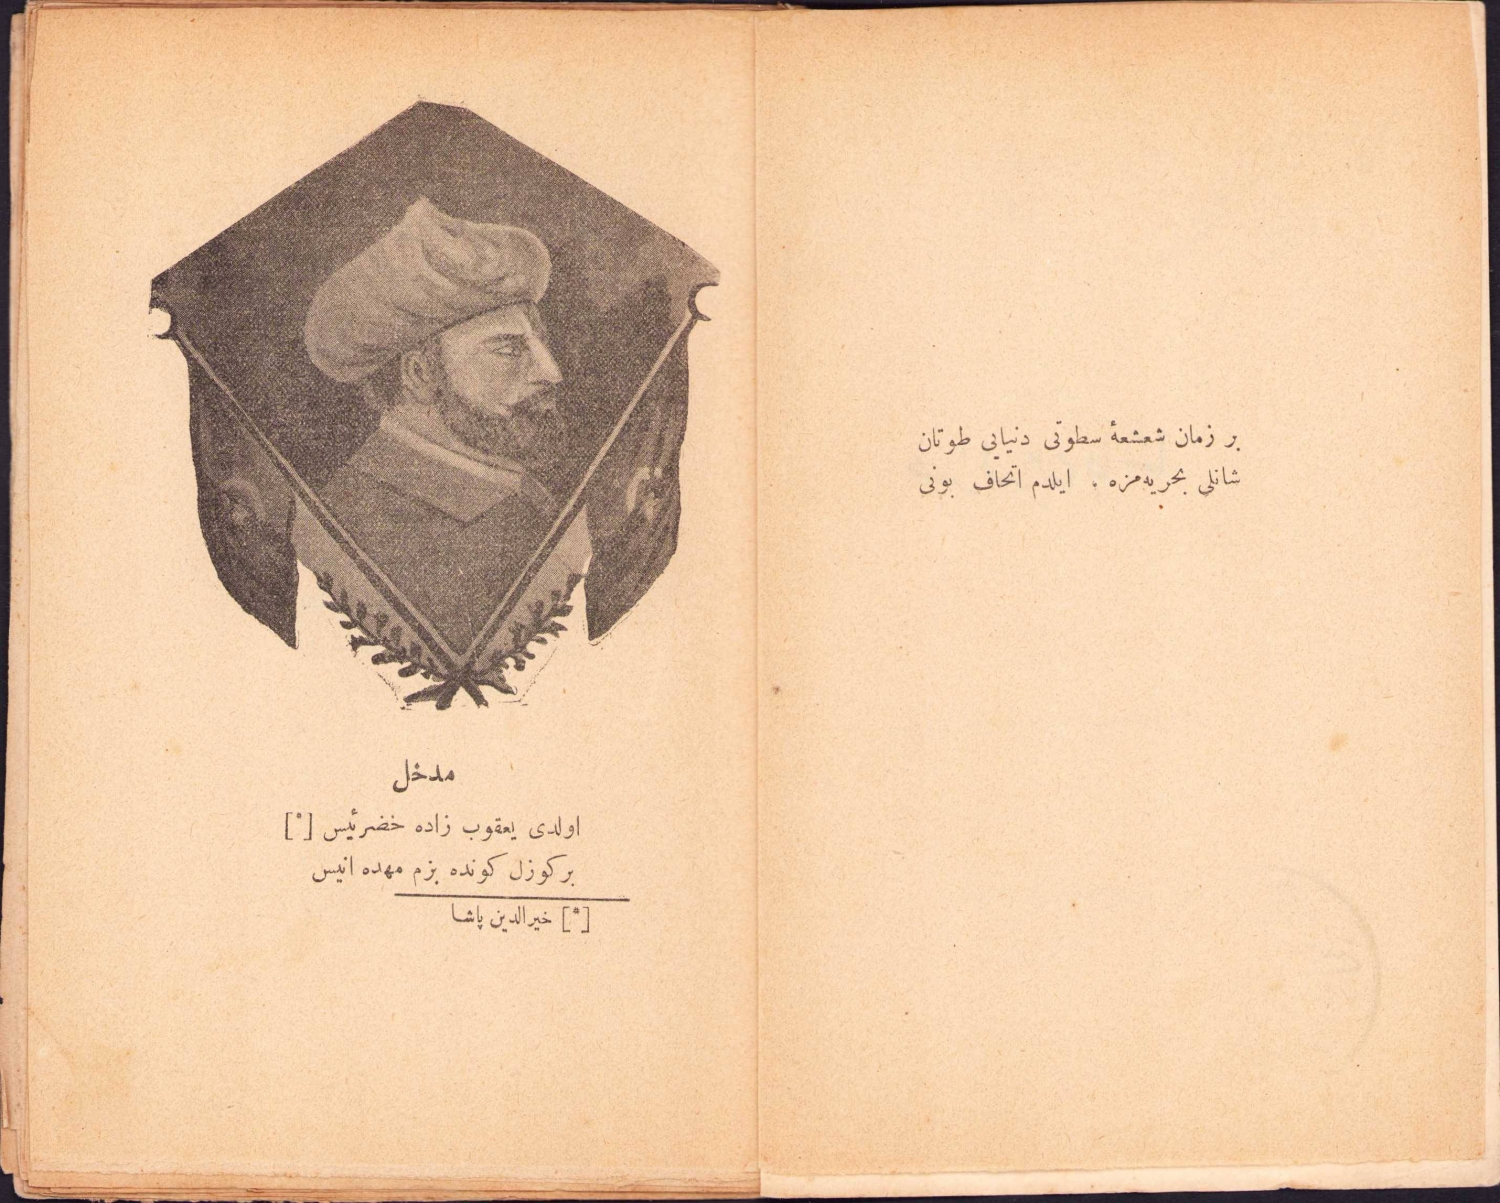 بر زمان شعشعهٔ سطوتی دنیایی طوتان
شانلی بحریه‌مزه . ایلدم اتحاف بونی
مدخل
اولدی یعقوب زاده خضر رئیس [*]
بر کوزل کونده بزم مهده انیس
[*] خیرالدین پاشا